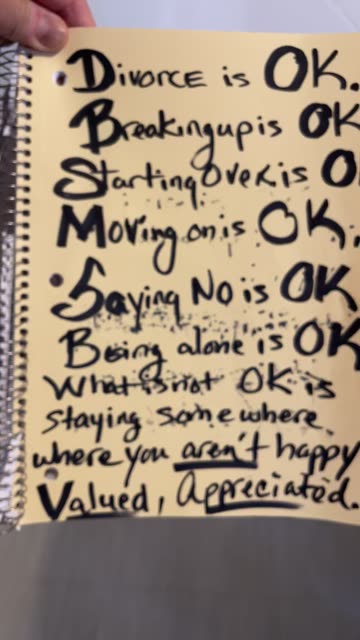 Divorce is OK.
Breaking up is OK
Starting over is O
Moving on is OK.
Saying No is OK
Being alone is OK
What is not OK is
staying somewhere
where you aren't happy
Valued, Appreciated.